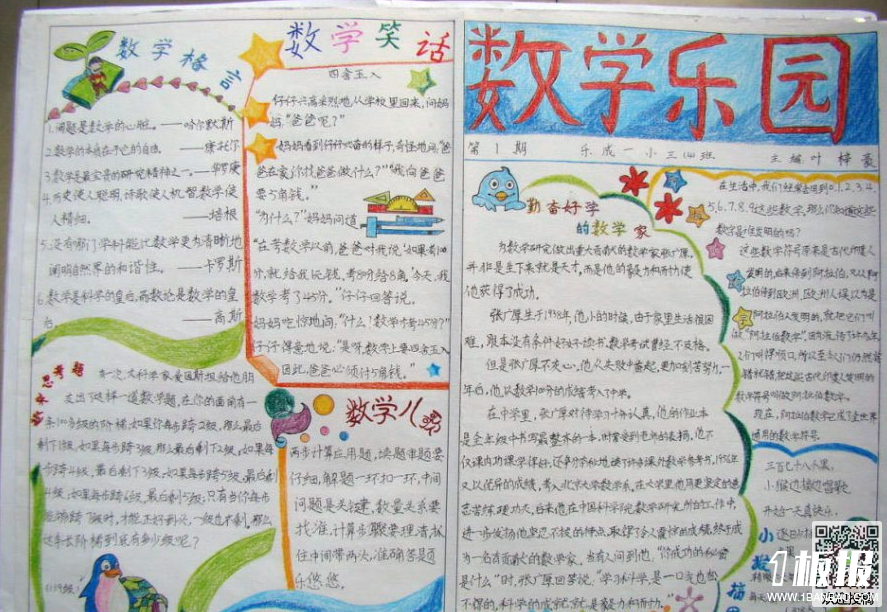 数学格言
1.问题是数学的心脏。——哈尔默斯
2.数学的本质在于它的自由。——康托尔
3.数学是最宝贵的研究精神之一。——华罗庚
4.历史使人聪明,诗歌使人机智,数学使
人精细。——培根
5.没有哪门学科能比数学更为清晰地
阐明自然界的和谐性。——卡罗斯
6.数学是科学的皇后,而数论是数学的皇
后。——高斯
思考题
有一次,大科学家爱因斯坦给他朋
友出了这样一道数学题,在你的面前有一
条100多级的阶梯,如果每步跨2级,那么最后
剩下1级,如果每步跨3级,那么最后剩下2级,如果每
步跨4级,最后剩下3级,如果每步跨5级,最后剩
4级,如果每步跨6级,最后剩5级;只有当你每步
能够跨7级时,才能正好到头,一级也不剩。那么
这条长阶梯到底有多少级呢?
(119级)
数学笑话
四舍五入
仔仔兴高采烈地从学校里回来,问妈
妈:“爸爸呢?”
妈妈看到仔仔兴奋的样子,奇怪地问:“爸
爸在家,你找爸爸做什么?”“我向爸爸
要5角钱。”
“为什么?”妈妈问道
“在考数学以前,爸爸对我说‘如果考100
分,就给我1元钱,考80分给8角,’今天,我
数学考了45分。”仔仔回答说。
妈妈吃惊地问:“什么!数学才考45分?”
仔仔得意地说:“是呀,数学上要四舍五入
因此,爸爸必须付5角钱。”
数学儿歌
两步计算应用题,读题审题要
仔细,解题一环扣一环,中间
问题是关键,数量关系要
找准,计算步骤要理清,抓
住中间带两头,准确答题
乐悠悠。
数学乐园
第1期 乐成一小三(4)班 主编 叶梓豪
勤奋好学
的数学家
为数学研究做出重大贡献的数学家张广厚,
并非是生下来就是天才,而是他的毅力和耐力使
他获得了成功。
张广厚生于1937年,他小的时候,由于家里生活很困
难,根本没有条件好好读书,数学考试曾经不及格。
但是张广厚不灰心,他从失败中奋起,更加刻苦努力,一
年后,他以数学100分的成绩考入了中学。
在中学里,张广厚对待学习十分认真,他的作业本
是全年级中书写最整齐的一本,时常受到老师的表扬,他不
仅课内功课学得好,还争分夺秒地读了许多课外数学参考书,
又以优异的成绩,考入北京大学数学系,在大学里他用更坚定的意
志苦练理功夫,后来他在中国科学院数学研究所的工作中,
进一步发扬他坚忍不拔的特点,取得了令人震惊的成绩,终于成
为一名有贡献的数学家,当有人问到他,“你成功的秘密
是什么”时,张广厚回答说,“学习科学是一口气也松
不得的,科学的成就就是毅力和耐力。”
在生活中,我们经常会用到0、1、2、3、4、
5、6、7、8、9这些数字,那么你知道这些
数字是谁发明的吗?
这些数字符号原来是古代印度人
发明的,后来传到阿拉伯,又从阿
拉伯传到欧洲,欧洲人误以为是
阿拉伯人发明的,就把它们叫
做“阿拉伯数字”,因为流传了许多年,
人们叫得顺口,所以至今人们仍然将
错就错,把这些古代印度人发明的
数字符号叫做阿拉伯数字。
现在,阿拉伯数字已成了全世界
通用的数字符号。
三百七十八里,
开始一天真快乐,
1板报
WWW.1BANBAO.COM